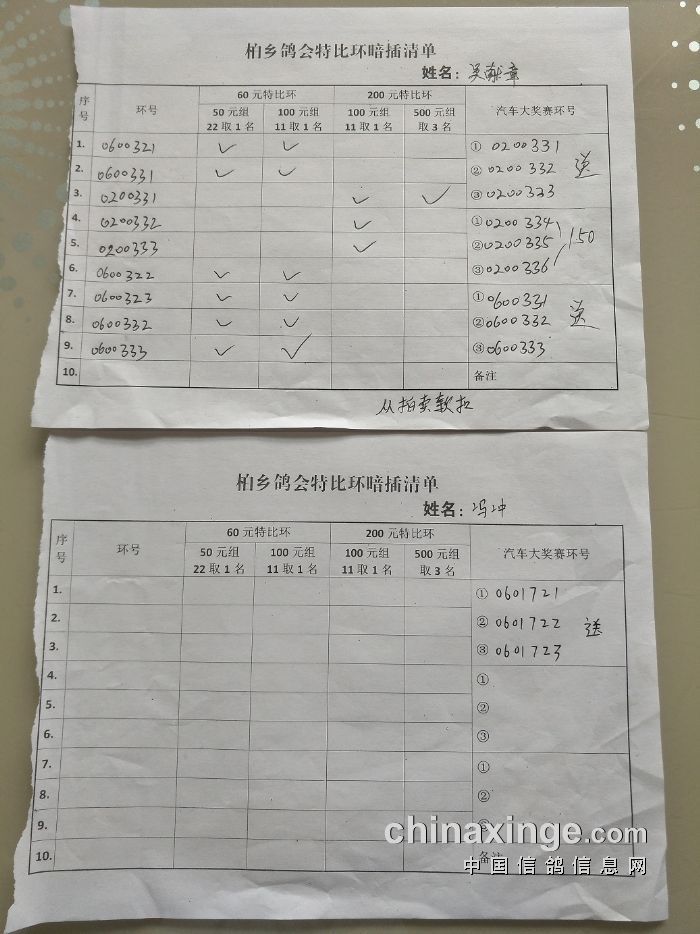 柏乡鸽会特比环暗插清单
姓名：吴献章
序号 环号 60元特比环 200元特比环 汽车大奖赛环号
50元组 22取1名 100元组 11取1名 100元组 11取1名 500元组 取3名
1. 0600321 ✓ ✓ ① 0200331
2. 0600331 ✓ ✓ ② 0200332 送
3. 0200331 ✓ ✓ ③ 0200333
4. 0200332 ✓ ① 0200334
5. 0200333 ✓ ② 0200335 150
6. 0600322 ✓ ✓ ③ 0200336
7. 0600323 ✓ ✓ ① 0600331
8. 0600332 ✓ ✓ ② 0600332 送
9. 0600333 ✓ ✓ ③ 0600333
10. 备注
从拍卖款扣
柏乡鸽会特比环暗插清单
姓名：冯冲
序号 环号 60元特比环 200元特比环 汽车大奖赛环号
50元组 22取1名 100元组 11取1名 100元组 11取1名 500元组 取3名
1. ① 0601721
2. ② 0601722 送
3. ③ 0601723
4. ①
5. ②
6. ③
7. ①
8. ②
9. ③
10. 备注
chinaxinge.com
中国信鸽信息网